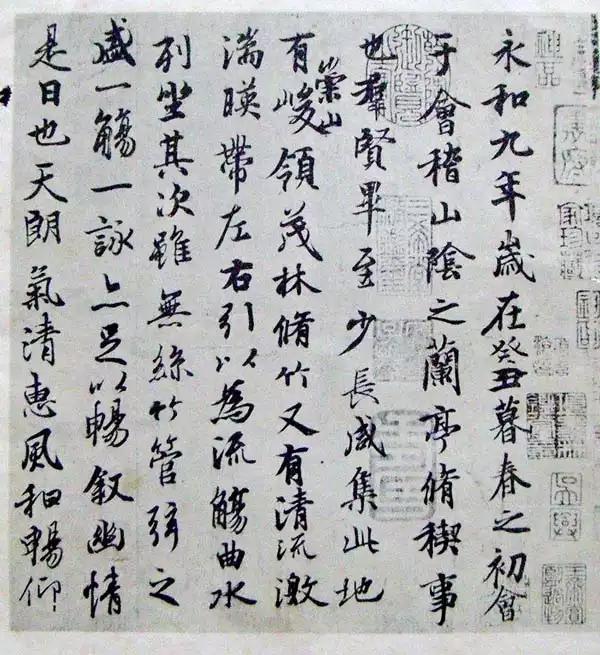 永和九年歲在癸丑暮春之初會
于會稽山陰之蘭亭脩稧事
也羣賢畢至少長咸集此地
有崇山峻領茂林脩竹又有清流激
湍暎帶左右引以為流觴曲水
列坐其次雖無絲竹管弦之
盛一觴一詠亦足以暢叙幽情
是日也天朗氣清惠風和暢仰
神品